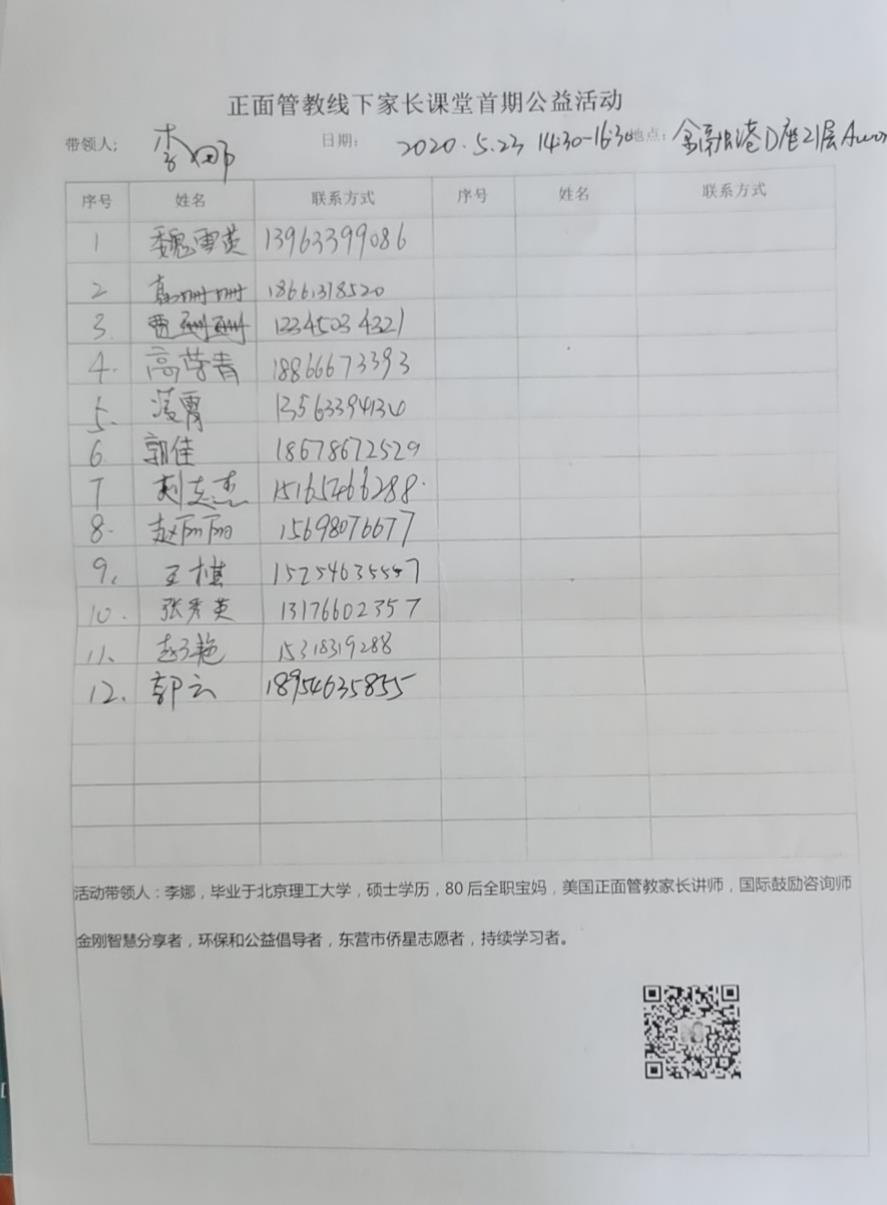 正面管教线下家长课堂首期公益活动
带领人: 李娜 日期: 2020.5.23 14:30-16:30 地点: 金融港D座21层
序号 姓名 联系方式 序号 姓名 联系方式
1 魏雪英 13963399086
2 18661318520
3. 12345034321
4. 高莹青 18866673393
5. 凌霄 13563394134
6 郭佳 18678672529
7 刘志杰 15165466288.
8. 赵丽丽 15698076677
9. 王棋 15254635557
10. 张秀英 13176602357
11、 赵子艳 15318319288
12. 郭云 18954635855
活动带领人:李娜,毕业于北京理工大学,硕士学历,80后全职宝妈,美国正面管教家长讲师,国际鼓励咨询师
金刚智慧分享者,环保和公益倡导者,东营市侨星志愿者,持续学习者。